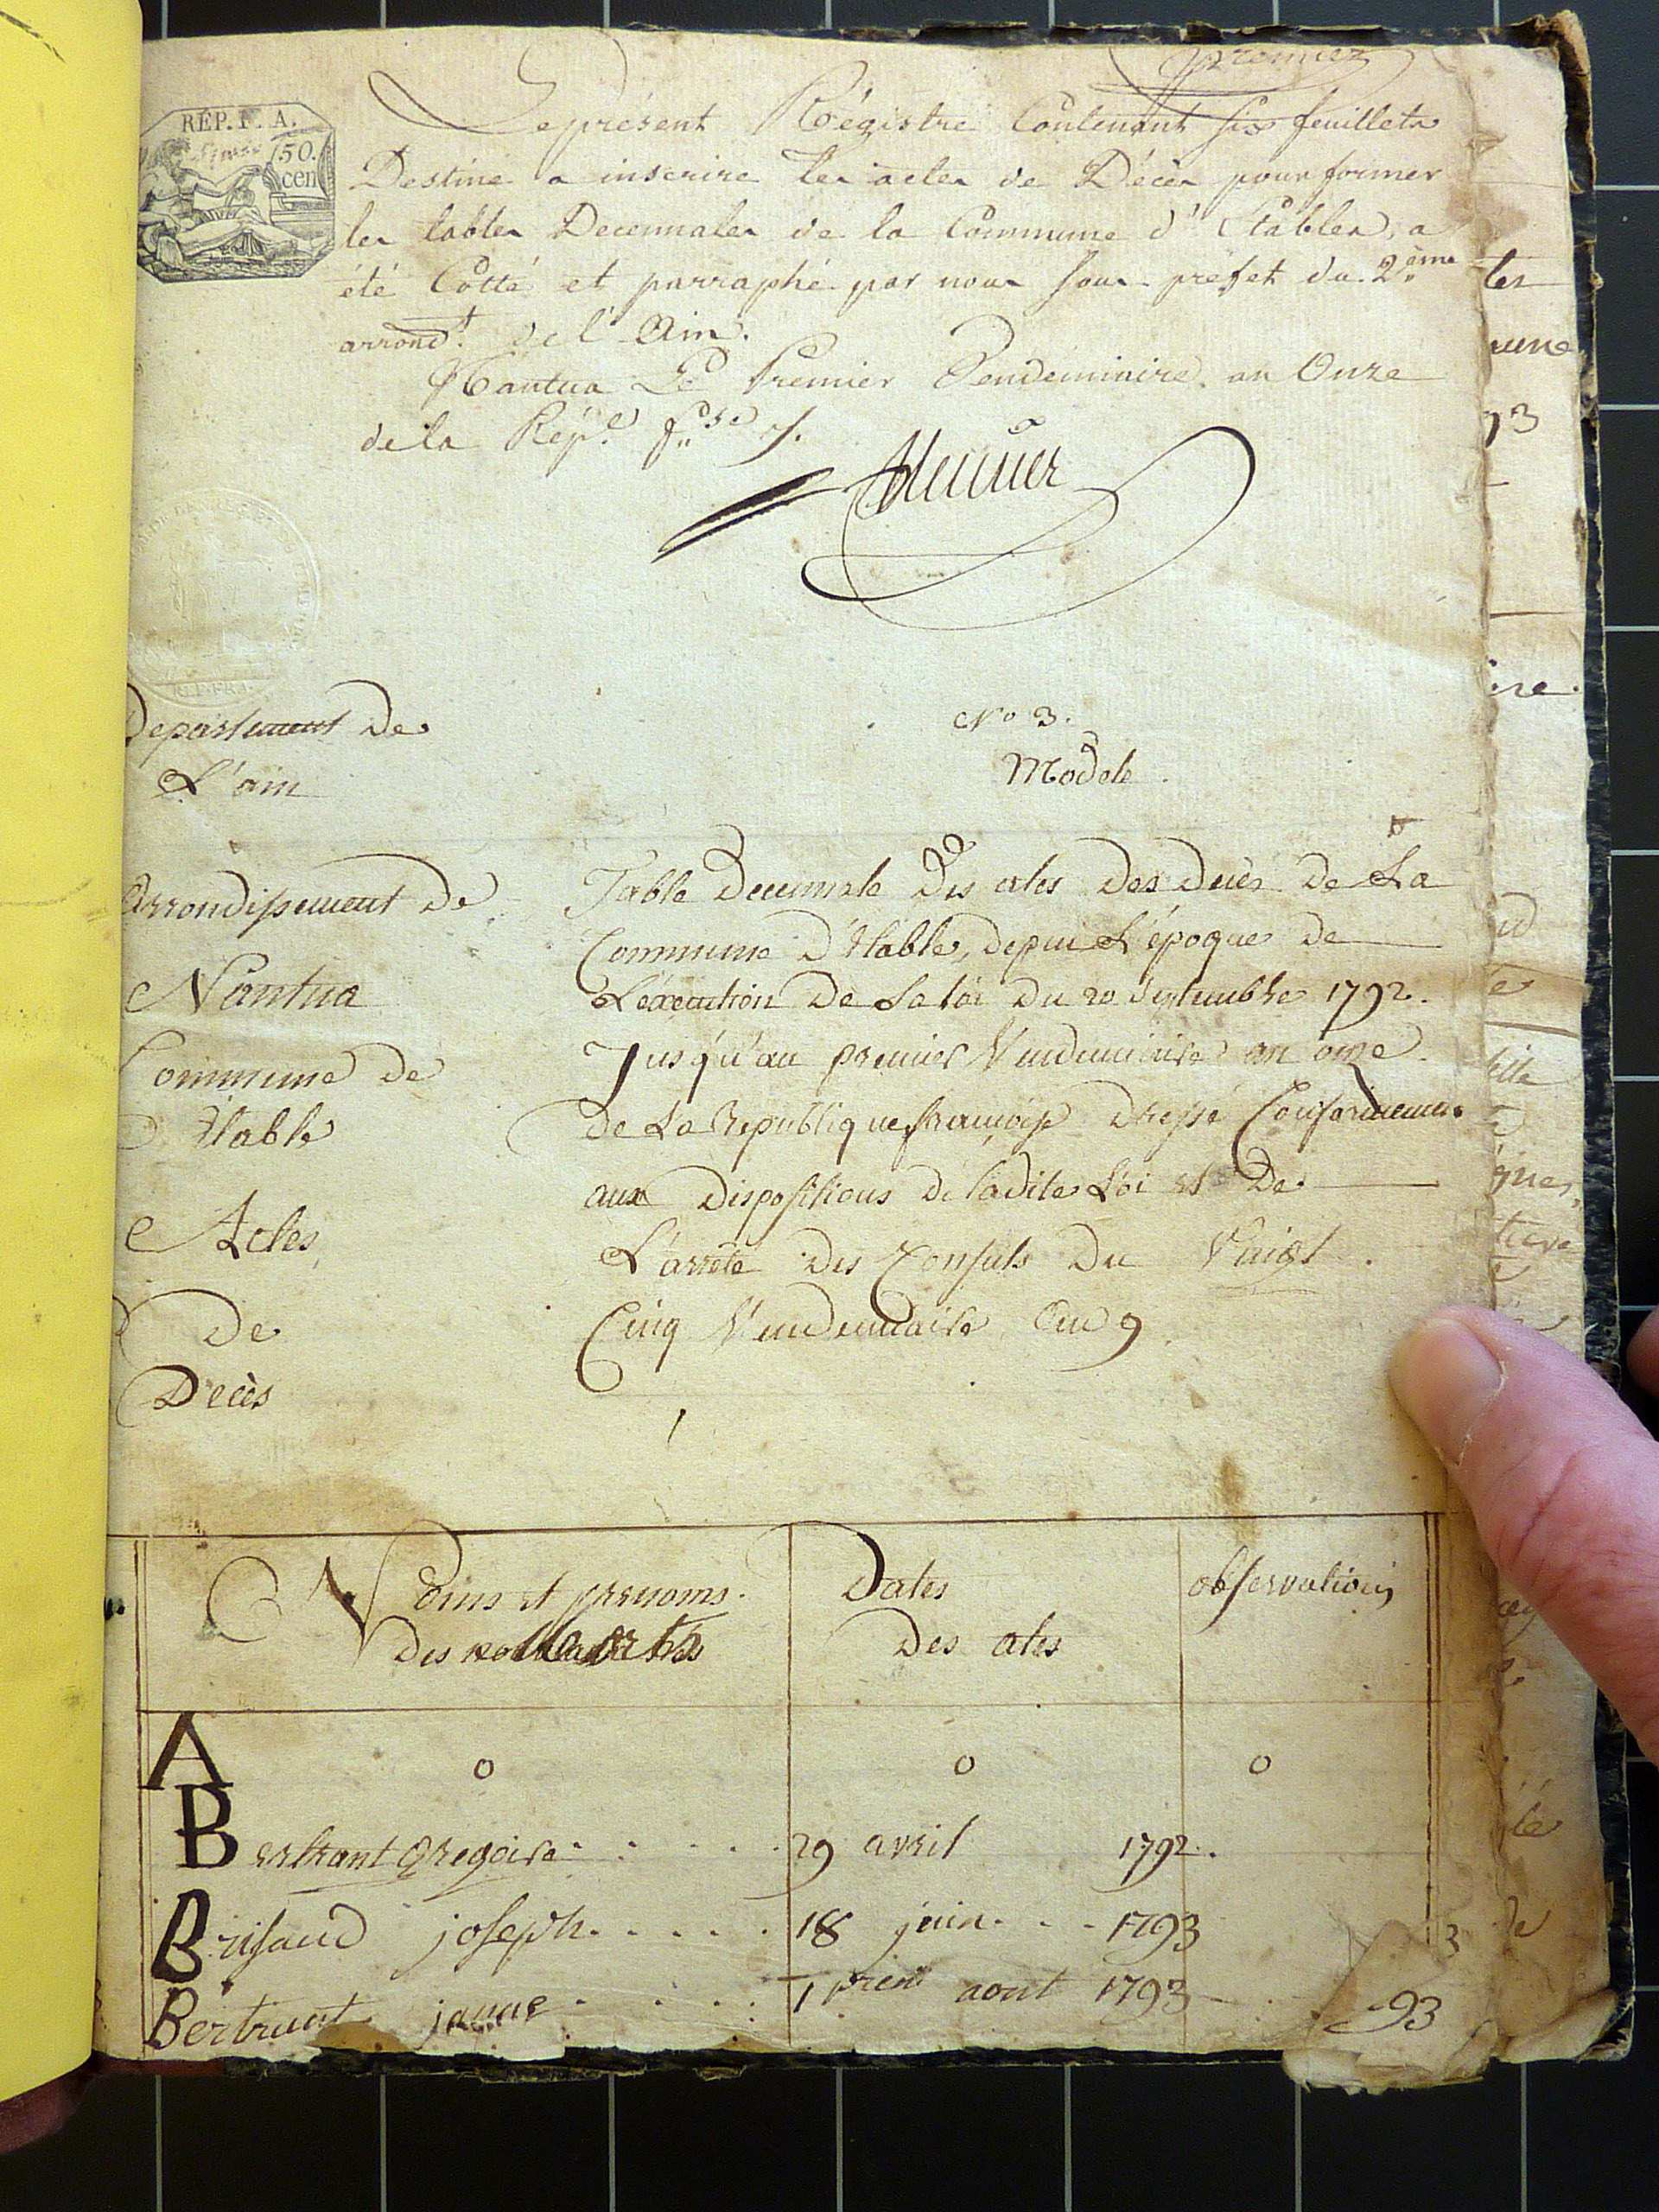 premier
RÉP. F. A.
50.
cen
Le présent Régistre Contenant six feuillets
Destiné a inscrire les actes de Décès pour former
les tables Decennales de la Commune d'Etables, a
été Cotté et parraphé par nous sous-préfet du 2.ème
arrond.t de l'Ain.
Nantua Le Premier Vendemiaire an Onze
de la Rép.e f.se
Departement de
L'ain
No 3.
Modele
Arrondissement de
Nantua
Commune de
Etable
Actes
De
Decès
Table Decennale Des actes Des Decès De La
Commune D'Etable, depuis L'époque De
L'éxecution De La loi Du 20 Septembre 1792.
Jusqu'au premier Vendemiaire an onze
De La Republique françoise Dressé Conformement
aux Dispositions De ladite Loi et De
L'arrêté Des Consuls Du Vuigt
Cinq Vendemiaire an 9
Noms et prenoms
Des morts
Dates
Des actes
observations
A o o o
Bertrant Gregoire 29 avril 1792.
Brisaud joseph 18 juin 1793
Bertrant janne 1 prem aout 1793
93